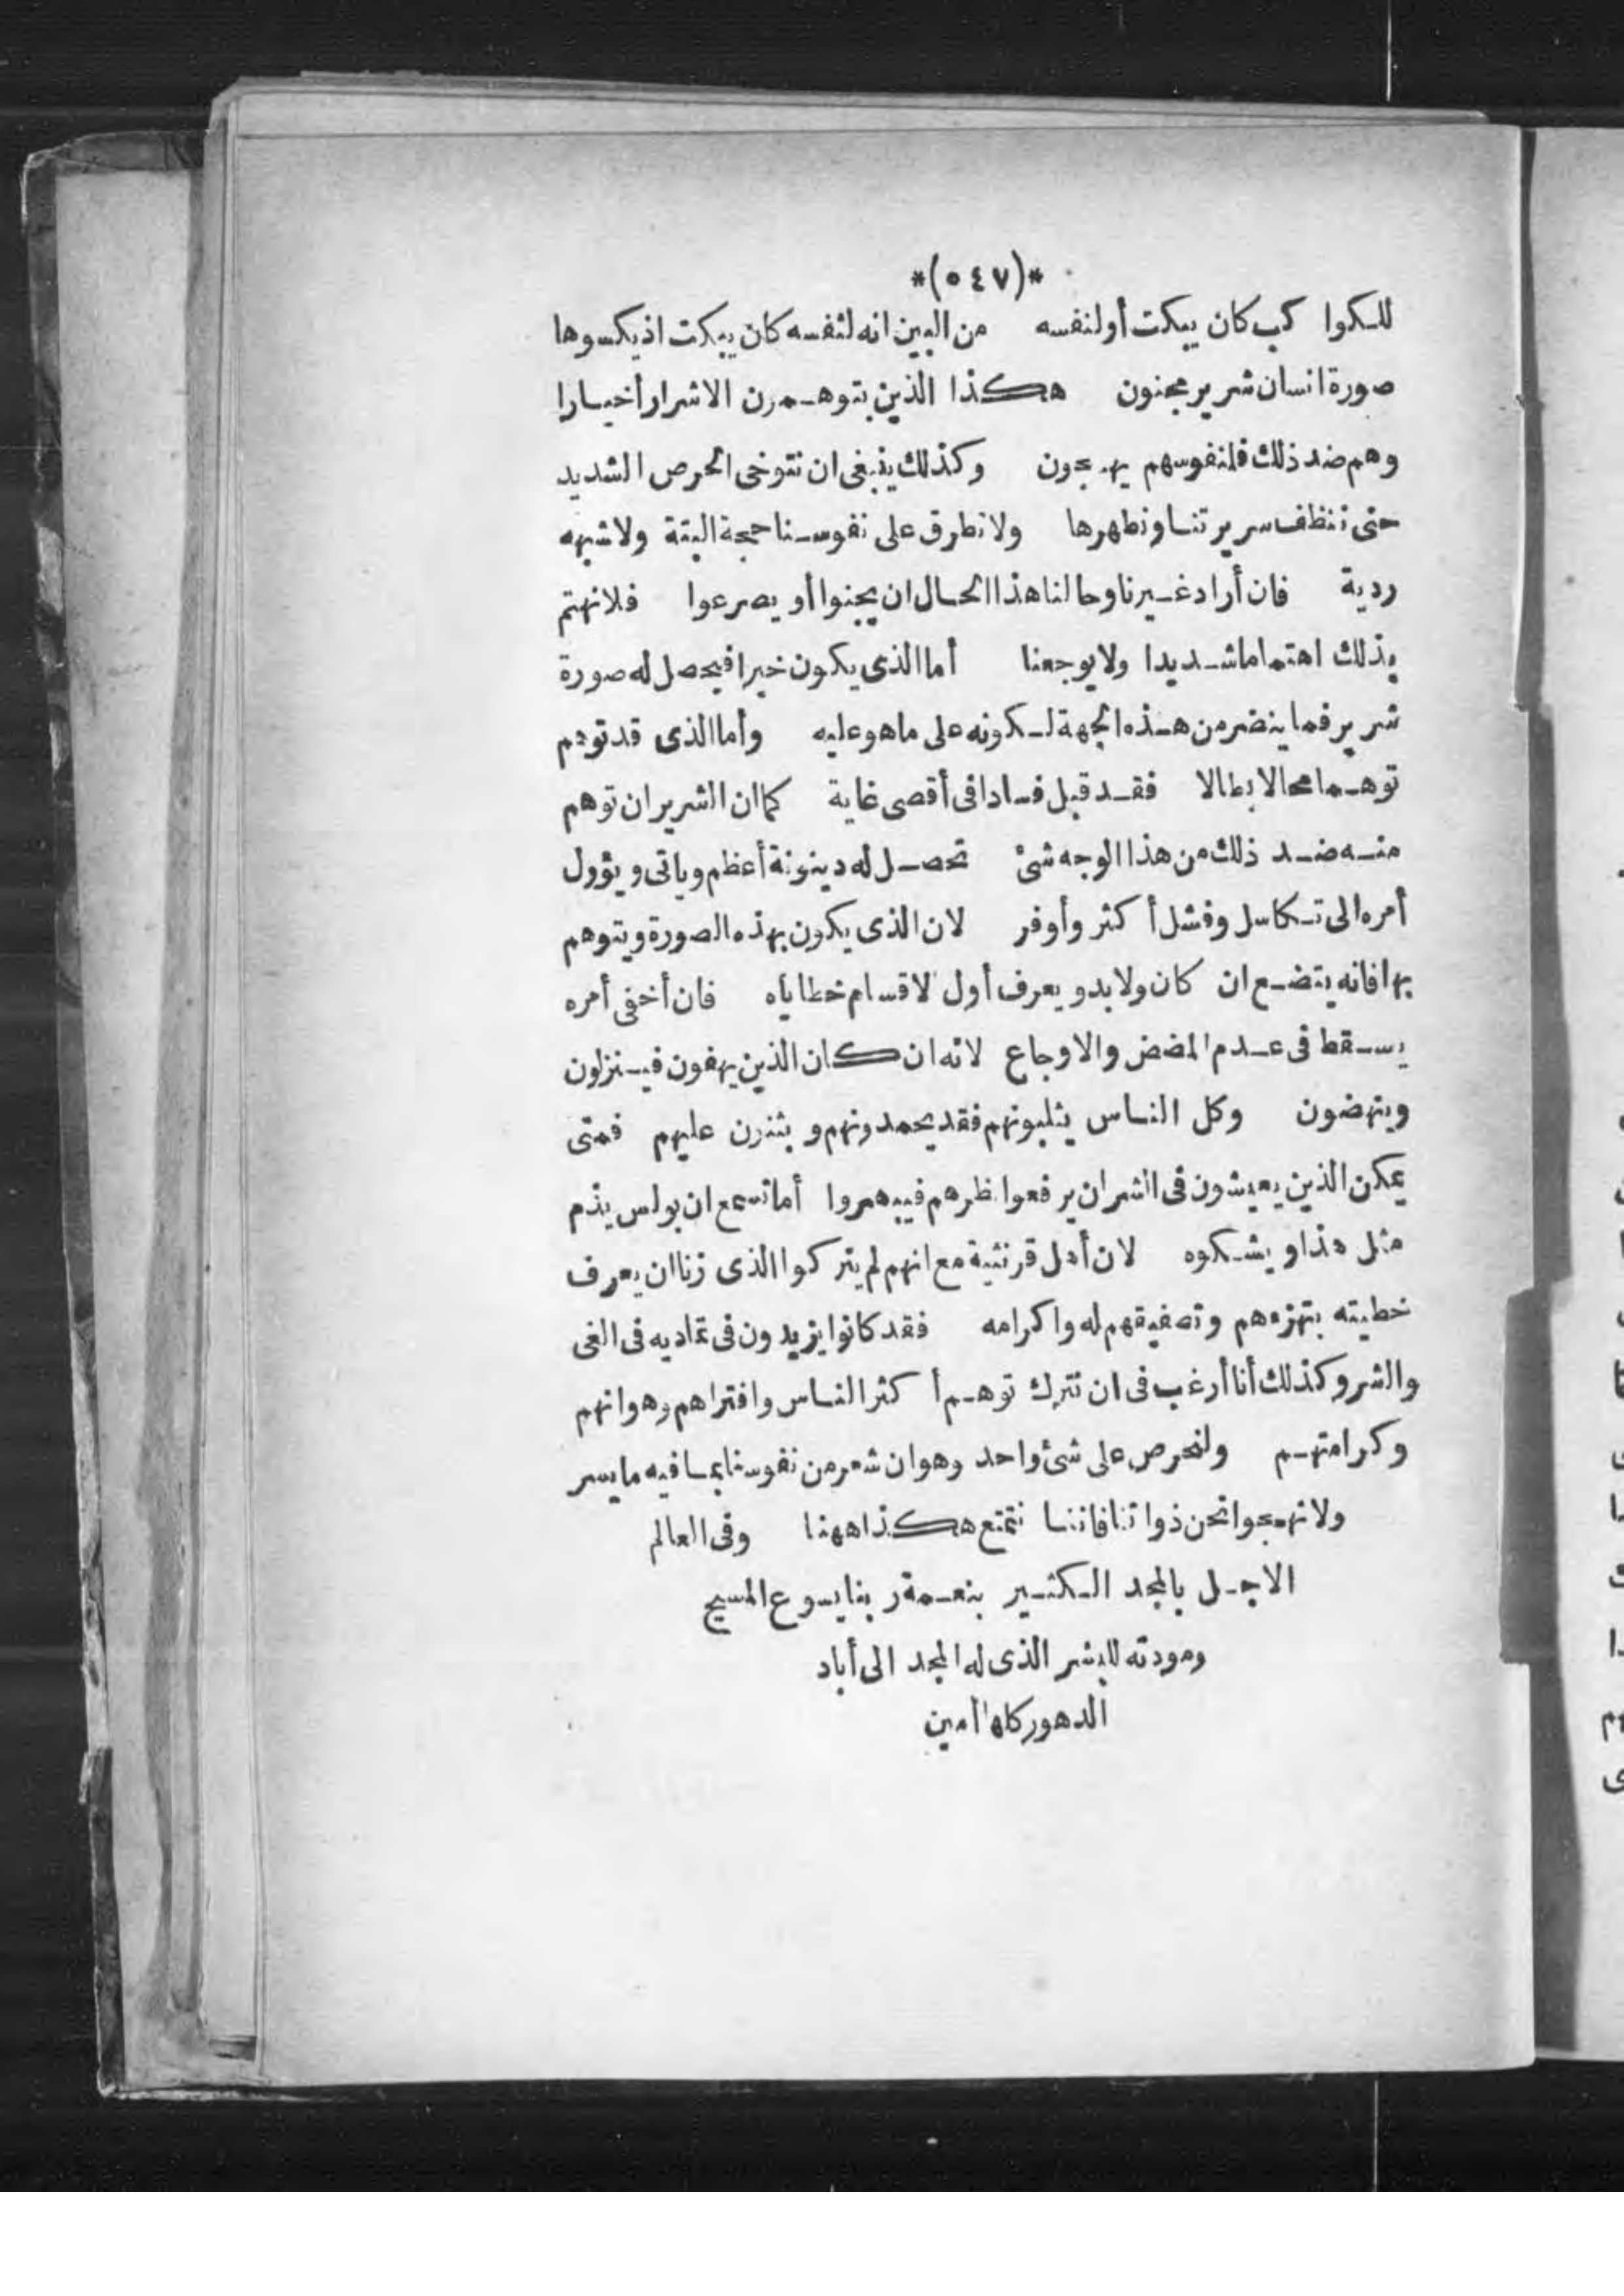 *(٥٤٧)*
للكوا كب كان يبكت أولنفسه من البين انه لنفسه كان يبكت اذ يكسوها
صورة انسان شرير مجنون هكذا الذين يتوهمون الاشرار أخيارا
وهم ضد ذلك فلنفوسهم يهجون وكذلك ينبغى ان نتوخى الحرص الشديد
حتى ننظف سريرتنا ونطهرها ولا نطرق على نفوسنا حجة البتة ولا شبهه
ردية فان أراد غيرنا وحالنا هذا الحال ان يجنوا أو يصرعوا فلا نهتم
بذلك اهتماما شديدا ولا يوجعنا أما الذى يكون خيرا فيحصل له صورة
شرير فما ينضر من هذه الجهة لكونه على ما هو عليه وأما الذى قد توهم
توهما محالا بطالا فقد قبل فسادا فى أقصى غاية كما ان الشرير ان توهم
منه ضد ذلك من هذا الوجه شئ تحصل له دينونة أعظم وياتى ويؤول
أمره الى تكاسل وفشل أكثر وأوفر لان الذى يكون بهذه الصورة ويتوهم
بها فانه يتضع ان كان ولا بد ويعرف أول لاقسام خطاياه فان أخفى أمره
يسقط فى عدم المضض والاوجاع لانه ان كان الذين يهفون فينزلون
وينهضون وكل الناس يثلبونهم فقد يحمدونهم ويثنون عليهم فمتى
يمكن الذين يعيشون فى الشر ان يرفعوا نظرهم فيبصروا أما تسمع ان بولس يذم
مثل هذا ويشكوه لان أهل قرنثية مع انهم لم يتركوا الذى زنا ان يعرف
خطيته بتهزءهم وتصفيقهم له واكرامه فقد كانوا يزيدون فى تماديه فى الغى
والشر وكذلك أنا أرغب فى ان نترك توهم أكثر الناس وافتراهم وهوانهم
وكرامتهم ولنحرص على شئ واحد وهو ان شعر من نفوسنا بما فيه ما يسر
ولا نهجوا نحن ذواتنا فاننا نتمتع هكذا ههنا وفى العالم
الاجل بالمجد الكثير بنعمة ربنا يسوع المسيح
ومودته للبشر الذى له المجد الى أباد
الدهور كلها أمين